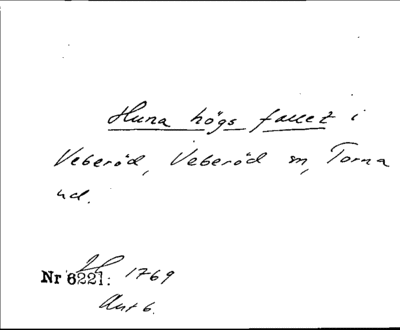 Huna högs fallet i
Veberöd, Veberöd sn, Torna
hd.
Nr 6221: 1769
Akt 6.